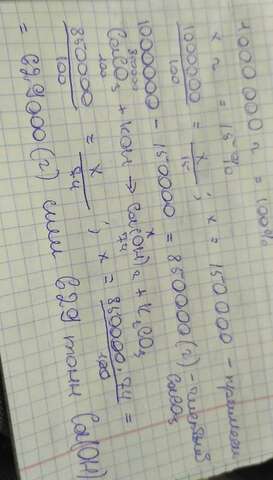 1000000 = 100%
x = 15%
1000000/100 = x/15 ; x = 150000 - примеси
1000000 - 150000 = 850000 (г) - чистый CaCO3
850000 x
CaCO3 + KOH → Ca(OH)2 + K2CO3
100 74
850000/100 = x/74 ; x = 850000·74/100 =
= 629000 (г) или 629 тонн Ca(OH)